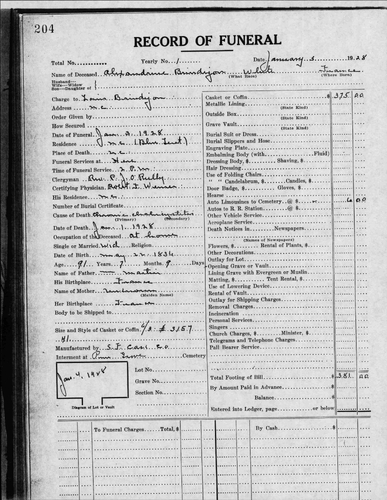 204
RECORD OF FUNERAL
Total No. Yearly No. 1 Date January 3 1928
Name of Deceased Alexandrine Bundyon White France
(What Race) (Where Born)
Husband—
Wife—Widow
Son—Daughter of
Charge to Louis Bundyon
Address M.C.
Order Given by
How Secured
Date of Funeral Jan. 3 1928
Residence M.C.
Place of Death M.C.
Funeral Services at Home
Time of Service 2 P.M.
Clergyman Rev. P. J. O'Reilly
Certifying Physician Robt. T.
His Residence M.C.
Number of Burial Certificate
Cause of Death Chronic
(Primary) (Secondary)
Date of Death Jan. 1 1928
Occupation of the Deceased At home
Single or Married Wid Religion
Date of Birth May 22 1836
Age 91 Years 7 Months 9 Days
Name of Father Martin
His Birthplace France
Name of Mother Unknown
(Maiden Name)
Her Birthplace France
Body to be Shipped to
Size and Style of Casket or Coffin 6/3 # 3157
Manufactured by S. F. Cas. Co
Interment at Cemetery
Jan. 4, 1928
Lot No.
Grave No.
Section No.
Diagram of Lot or Vault
Casket or Coffin $ 375 00
Metallic Lining
(State Kind)
Outside Box
(State Kind)
Grave Vault
(State Kind)
Burial Suit or Dress
Burial Slippers and Hose
Engraving Plate
Embalming Body (with Fluid)
Dressing Body, $ Shaving, $
Hair Dressing
Use of Folding Chairs
" " Candelabrum, $ Candles, $
Door Badge, $ Gloves, $
Hearse
Auto Limousines to Cemetery @ $ 6 00
Autos to R. R. Station @ $
Other Vehicle Service
Aeroplane Service
Death Notices in Newspapers
(Names of Newspapers)
Flowers, $ Rental of Plants, $
Other Decorations
Outlay for Lot
Opening Grave or Vault
Lining Grave with Evergreen or Muslin
Matting, $ Tent Rental, $
Use of Lowering Device
Rental of Vault
Outlay for Shipping Charges
Removal Charges
Incineration
Personal Services
Singers
Church Charges, $ Minister, $
Telegrams and Telephone Charges
Pall Bearer Service
Total Footing of Bill $ 381 00
By Amount Paid in Advance
Balance
Entered into Ledger, page or below
To Funeral Charges Total, $
By Cash $